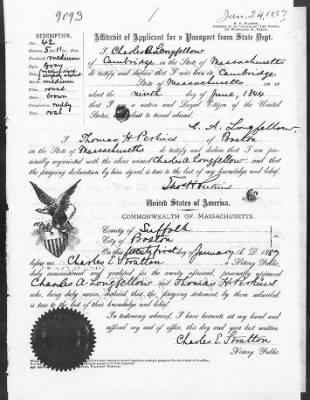 9093
Jan. 24, 1887
DESCRIPTION.
Age, 42
Affidavit of Applicant for a Passport from State Dept.
I, Charles A. Longfellow
of Cambridge in the State of Massachusetts
do testify and declare that I was born in Cambridge
State of Massachusetts on or
about the ninth day of June, 1844
that I am a native and Loyal Citizen of the United
States, and about to travel abroad.
C. A. Longfellow.
I, Thomas H. Perkins of Boston
in the State of Massachusetts do testify and declare that I am per-
sonally acquainted with the above named Charles A. Longfellow, and that
the foregoing declaration by him signed is true to the best of my knowledge and belief.
Thos H Perkins
United States of America.
COMMONWEALTH OF MASSACHUSETTS.
County of Suffolk
City of Boston
On this twenty first day of January A. D. 1887
before me Charles E. Stratton a Notary Public,
duly commissioned and qualified for the county aforesaid, personally appeared
Charles A. Longfellow and Thomas H. Perkins
who, being duly sworn, declared that the foregoing statement by them subscribed
is true to the best of their knowledge and belief.
In testimony whereof, I have hereunto set my hand and
affixed my seal of office, this day and year last written
Charles E. Stratton
Notary Public.